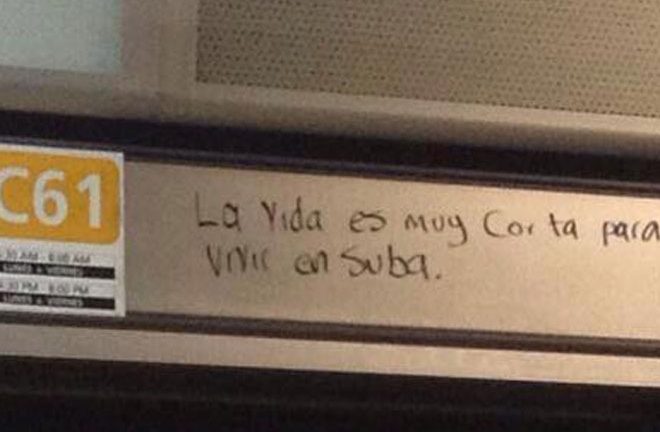 C61
:30 AM - 8:00 AM
LUNES A VIERNES
:30 PM - 8:00 PM
LUNES A VIERNES
La vida es muy Corta para
vivir en Suba.